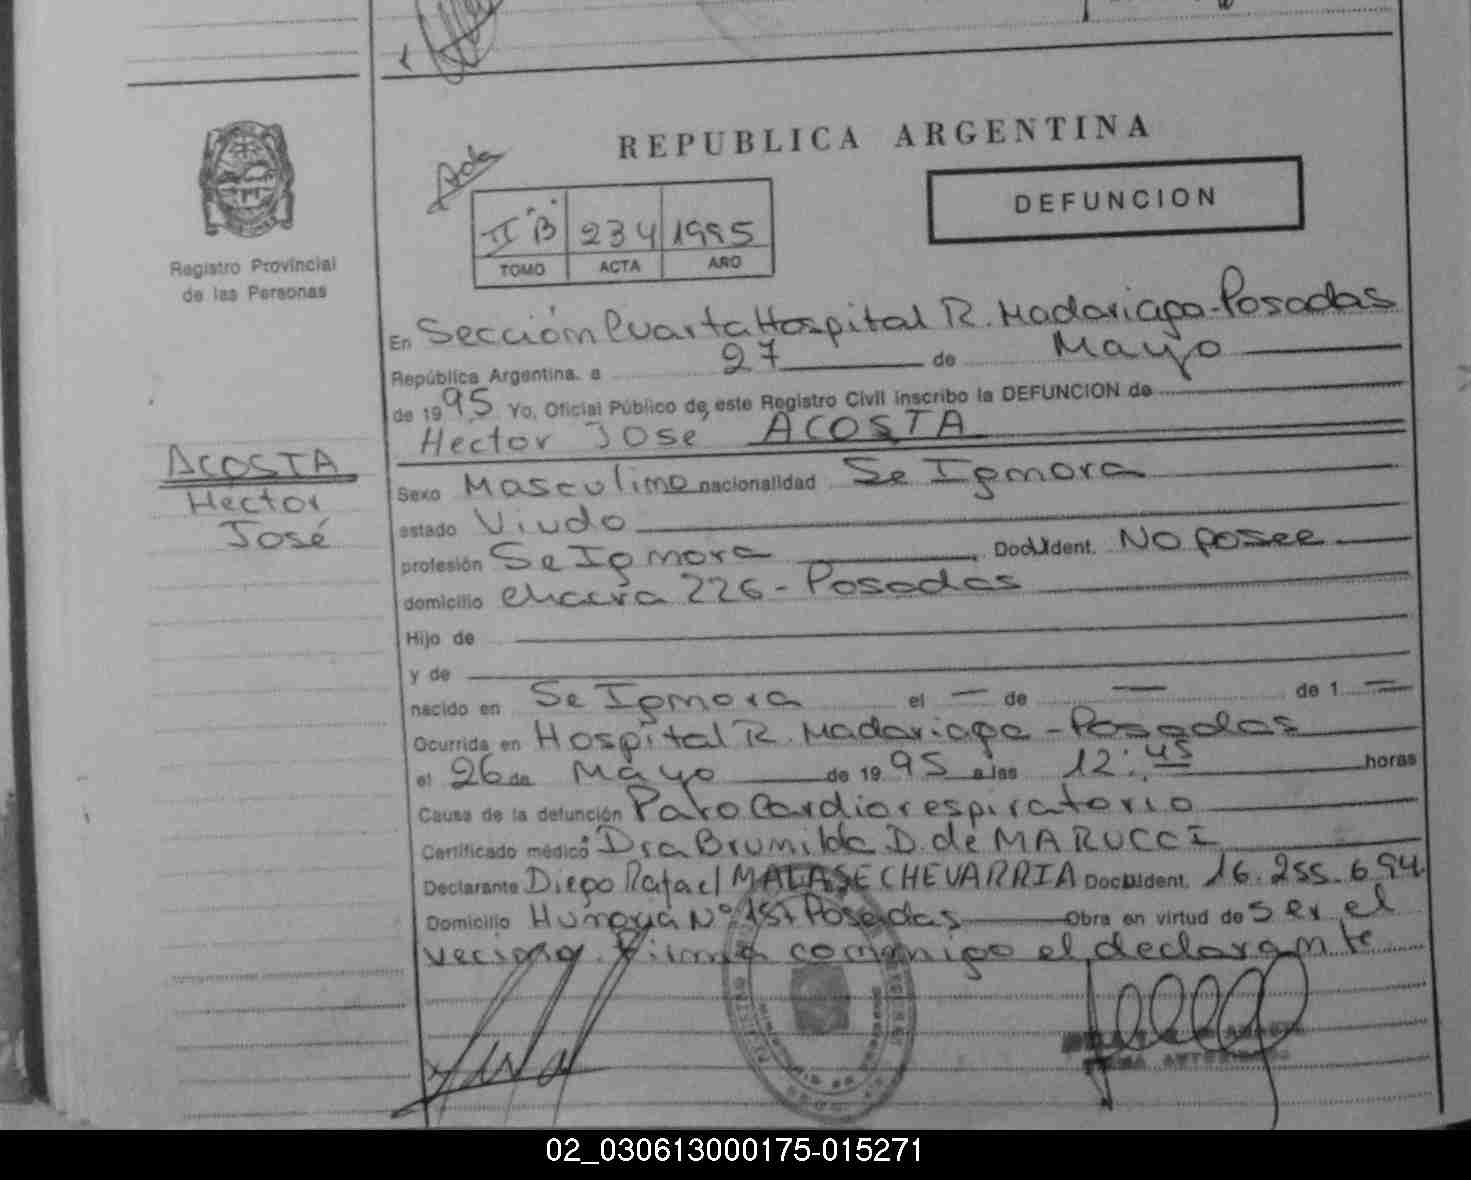 REPUBLICA ARGENTINA
Acta
II "B" 234 1995
TOMO ACTA AÑO
DEFUNCION
Registro Provincial
de las Personas
ACOSTA
Hector
José
En Sección Cuarta Hospital R. Madariaga - Posadas
República Argentina, a 27 de Mayo
de 1995 Yo, Oficial Público de este Registro Civil inscribo la DEFUNCION de
Hector José ACOSTA
Sexo Masculino nacionalidad Se Ignora
estado Viudo
profesión Se Ignora Doc. Ident. No posee
domicilio chacra 226 - Posadas
Hijo de
y de
nacido en Se Ignora el — de — de 1 —
Ocurrida en Hospital R. Madariaga - Posadas
el 26 de Mayo de 1995 a las 12:45 horas
Causa de la defunción Paro Cardiorespiratorio
Certificado médico Dra Brunilda D. de MARUCCI
Declarante Diego Rafael MALASECHEVARRIA Doc. Ident. 16.255.694
Domicilio Nº Posadas Obra en virtud de ser el
vecino. Firma conmigo el declarante
02_030613000175-015271